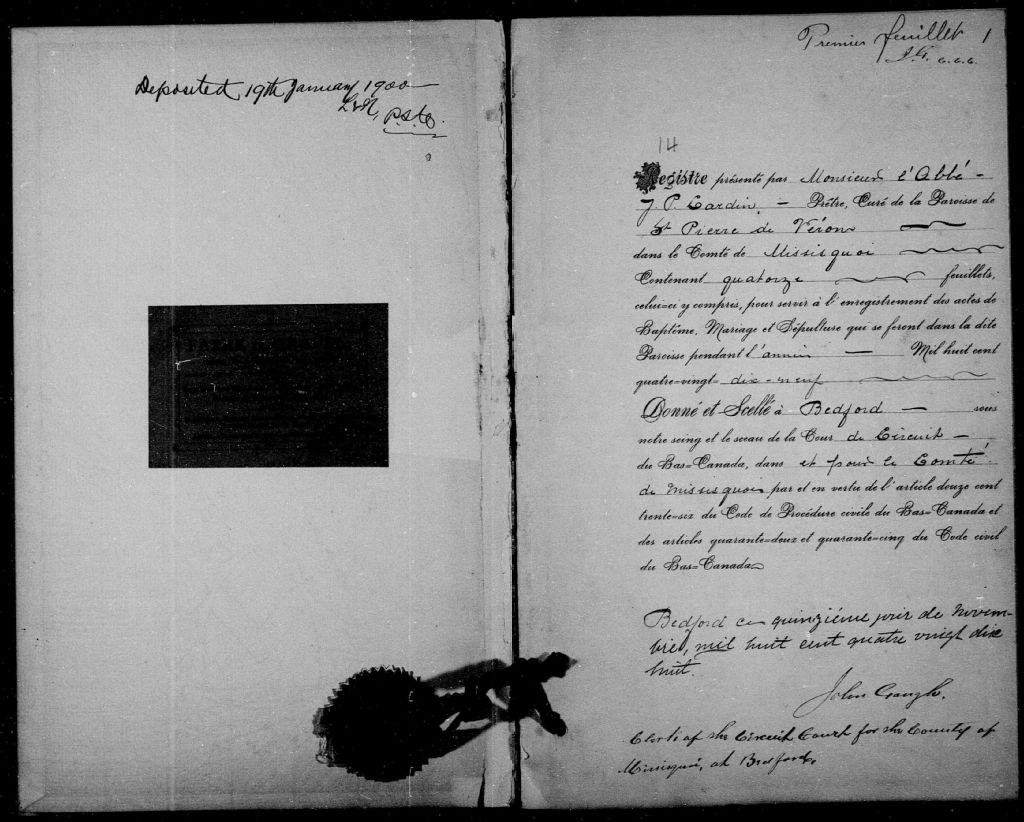 Deposited 19th January 1900
P.S.C.
Premier feuillet 1
J.G. c.c.c.
14
Registre présenté par Monsieur l'Abbé
J. P. Cardin, Prêtre, Curé de la Paroisse de
St Pierre de Vérone
dans le Comté de Missisquoi
Contenant quatorze feuillets,
celui-ci y compris, pour servir à l'enregistrement des actes de
Baptême, Mariage et Sépulture qui se feront dans la dite
Paroisse pendant l'année Mil huit cent
quatre-vingt-dix-neuf
Donné et Scellé à Bedford sous
notre seing et le sceau de la Cour de Circuit
du Bas-Canada, dans et pour le Comté
de Missisquoi par et en vertu de l'article douze cent
trente-six du Code de Procédure civile du Bas-Canada et
des articles quarante-deux et quarante-cinq du Code civil
du Bas-Canada
Bedford ce quinzième jour de Novem-
bre, mil huit cent quatre vingt dix
huit.
John Gough.
Clerk of the Circuit Court for the County of
Missisquoi, at Bedford,